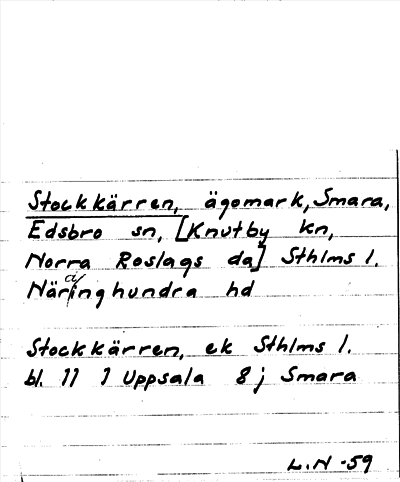 Stockkärren, ägomark, Smara,
Edsbro sn, [Knutby kn,
Norra Roslags da] Sthlms l.
Näringhundra hd
Stockkärren, ek Sthlms l.
bl. 11 J Uppsala 8 j Smara
L.N -59